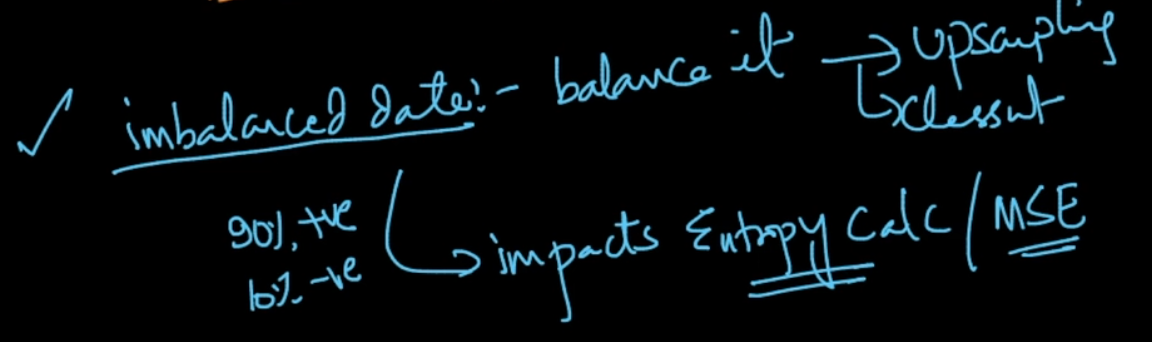 ✓ imbalanced data:- balance it → Upsampling
↳ classwt
90%, +ve
10%, -ve
↳ impacts Entropy Calc / MSE